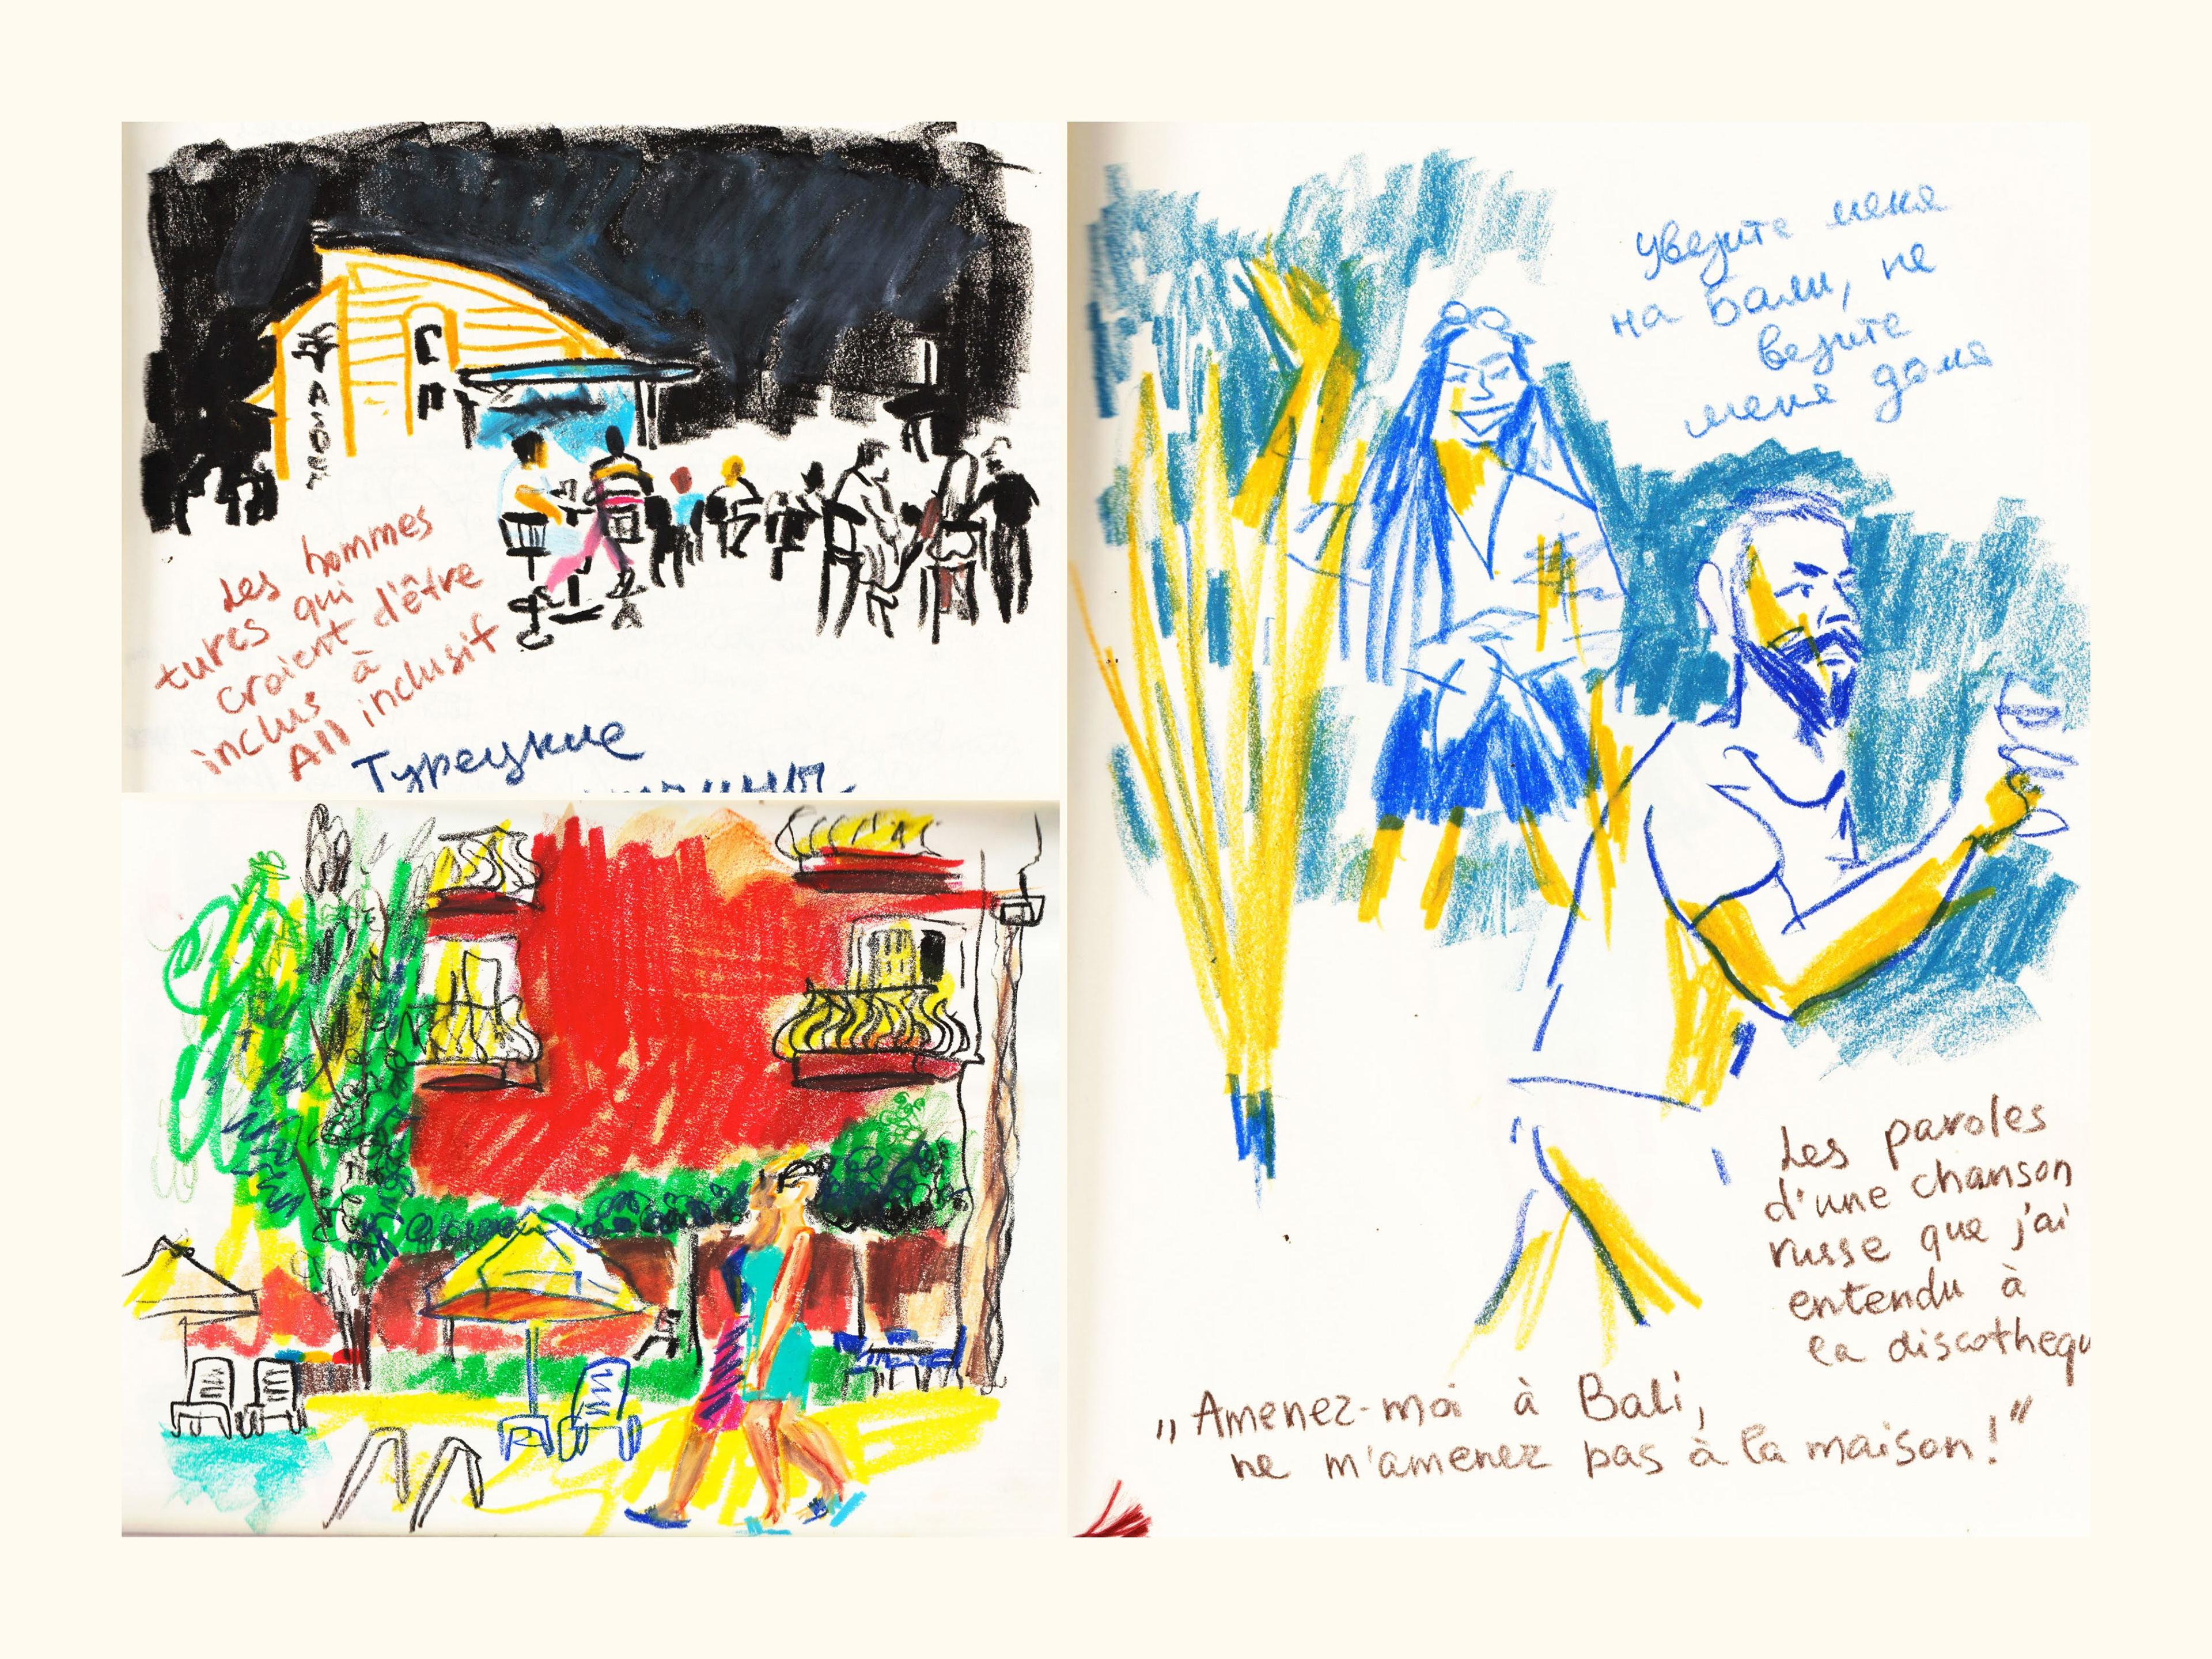 Les hommes
turcs qui
croient d'être
inclus à
All inclusif
Турецкие
увезите меня
на Бали, не
везите
меня домя
Les paroles
d'une chanson
russe que j'ai
entendu à
la discothequ
„Amenez-moi à Bali,
ne m'amenez pas à la maison!"